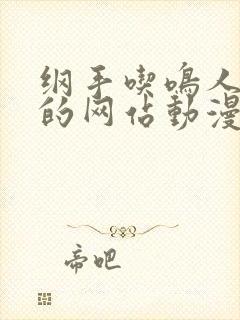 纲手喫鳴人
的网佔動漫
帝吧